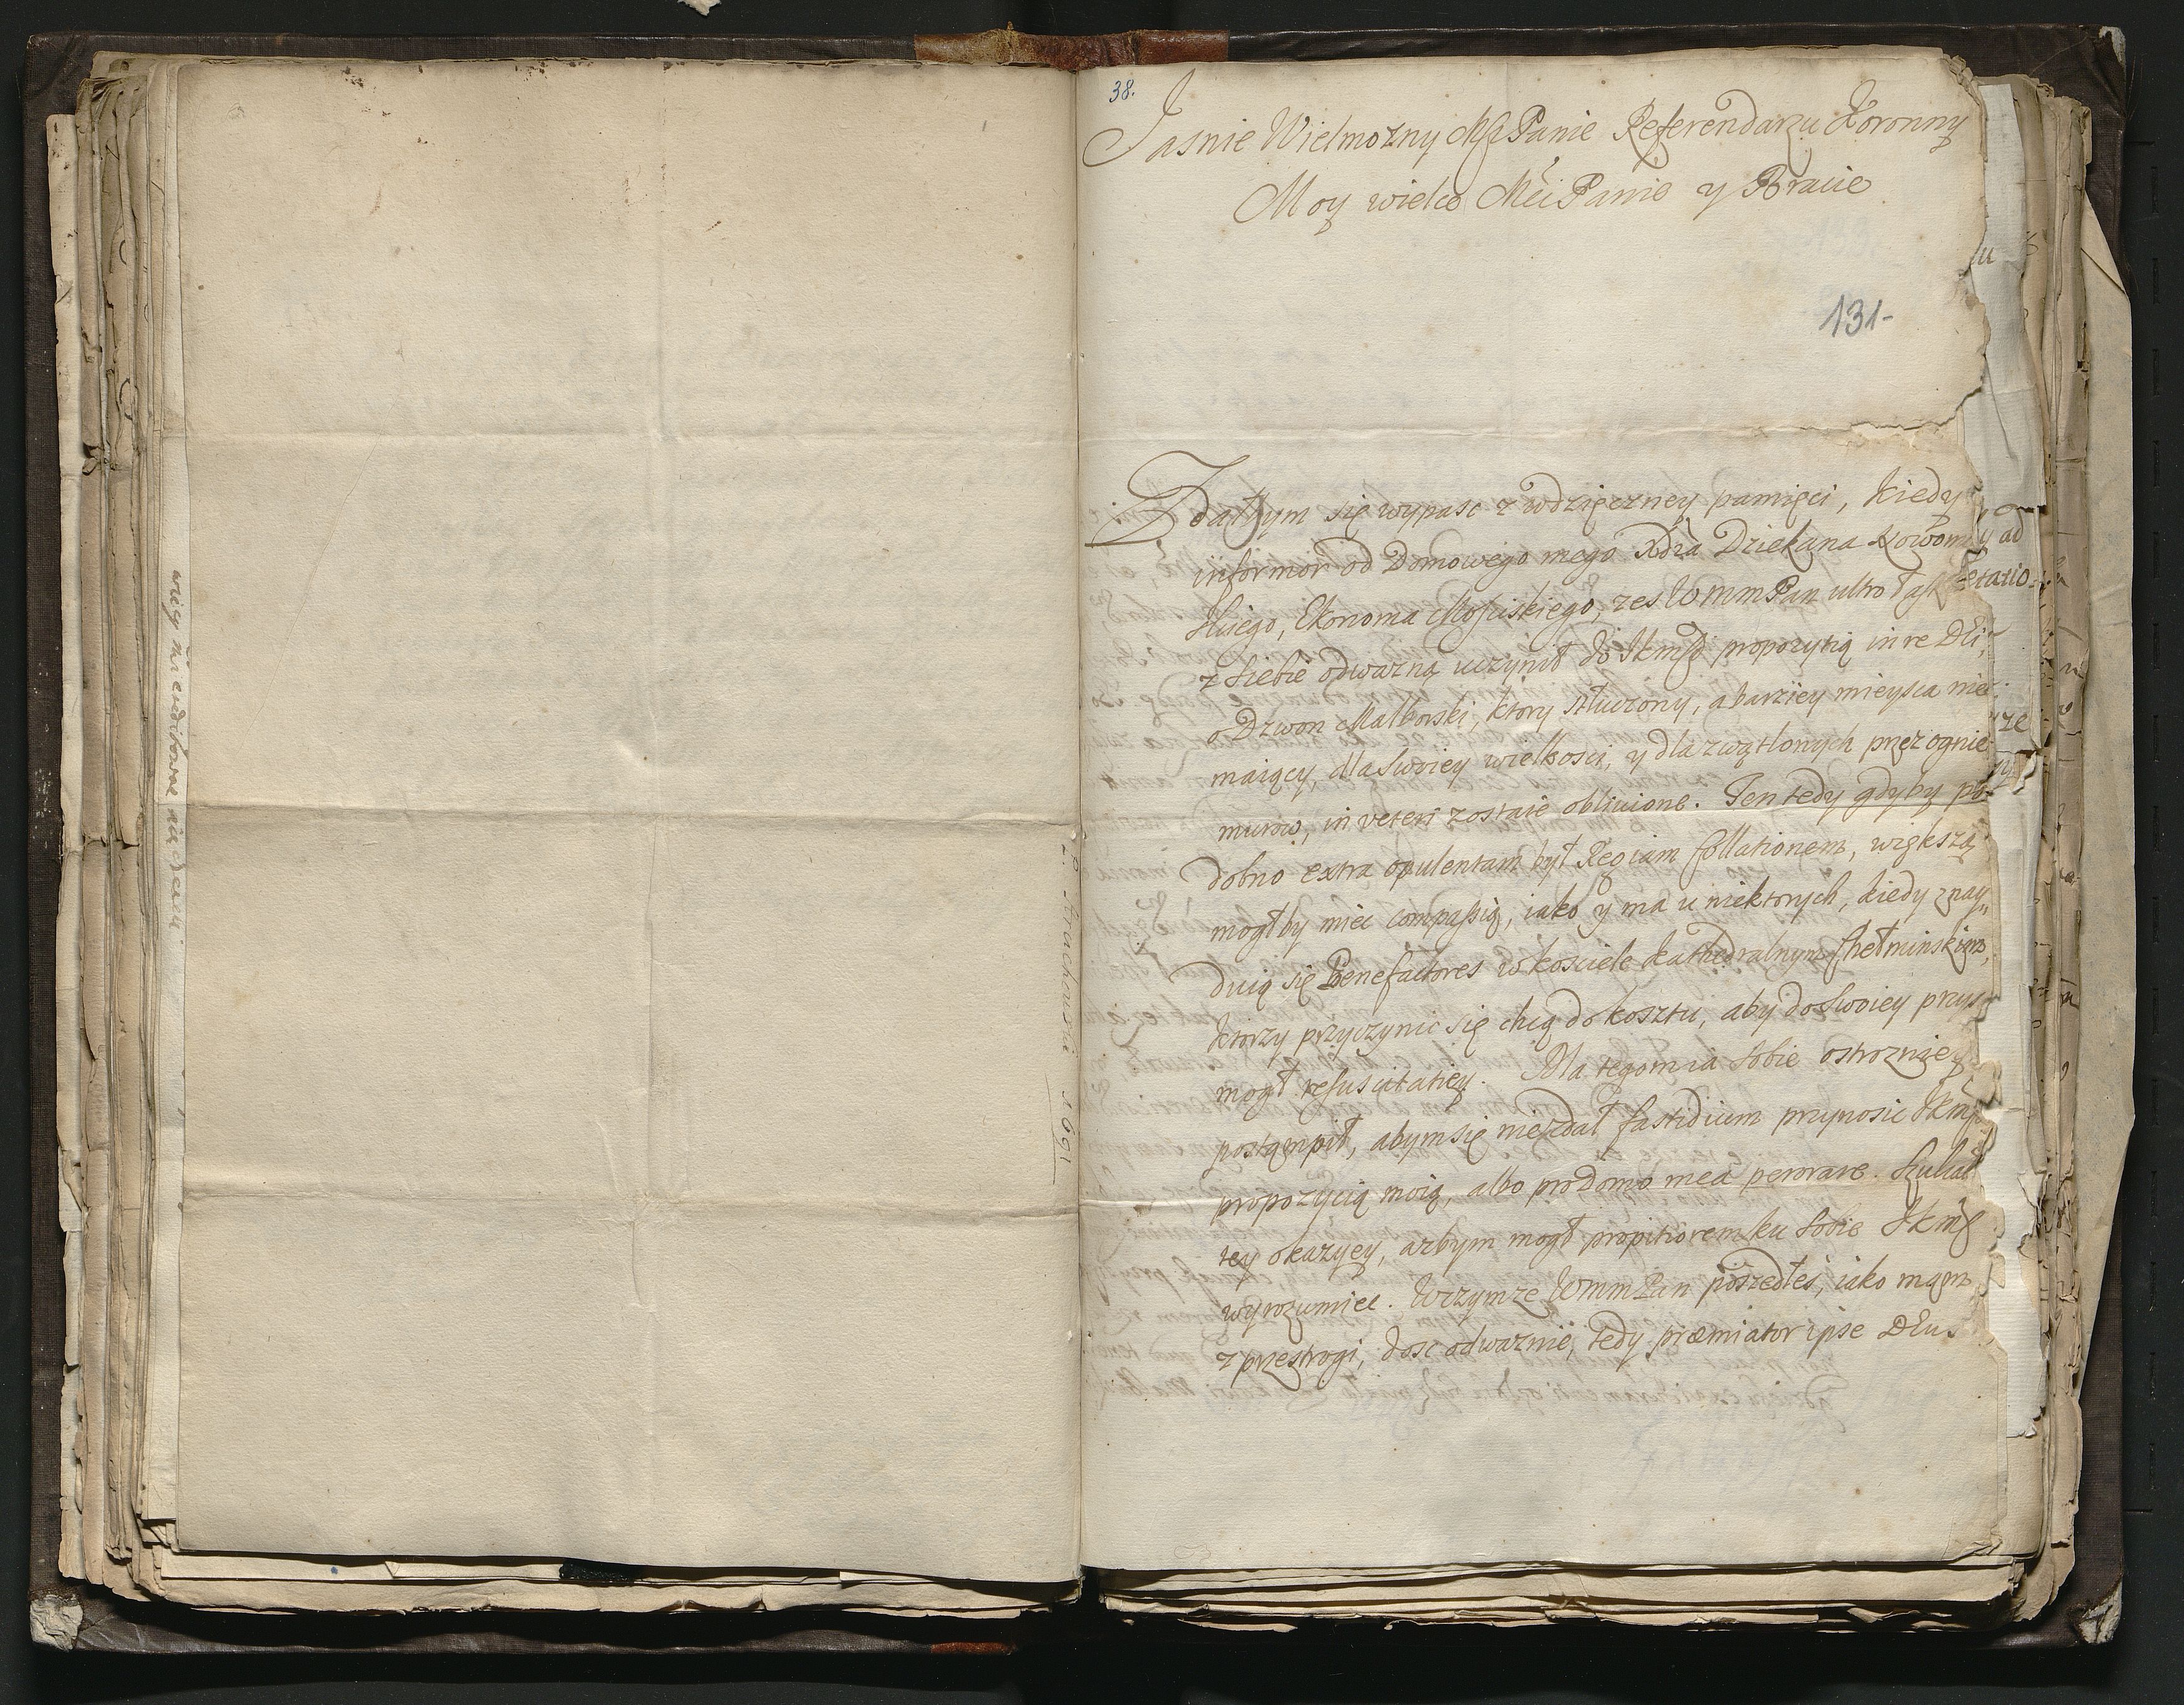 38.
Jasnie Wielmozny Mśc Panie Referendarzu Koronny
Moy wielce Mći Panie y Bracie
131-
Zdałbym się wypasc z wdzięczney pamięci, kiedy
informor od Domowego mego Xdza Dziekana
Ekonoma zes WMM Pan ultro
z siebie odwazną uczynił do JKMści propozytią in re Dei,
o Dzwon Malborski, ktory stłuczony, a barziey mieysca nie
maiący, dla swoiey wielkosci, y dla zwątlonych przez ognie
murow, in veteri zostaie oblivione. Ten tedy gdyby po
dobno extra opulentam był Regiam Collationem, większą
mogłby miec compassią, iako y ma u niektorych, kiedy znay„
duią się Benefactores w kosciele Kathedralnym Chełminskim,
ktorzy przyczynic się chcą do kosztu, aby do swoiey przysc
mogł resuscitatiey. Dla tegom ia sobie ostrozniey
postąmpił, abym się nie zdał fastidium przynosic JKMści
propozycią moią, albo pro domo mea perorare. Szukał
tey okazyey, azbym mogł propitiorem ku sobie JKMść
wyrozumiec. W czymze WMM Pan poszedłes, iako mąm
z przestrogi, dosc odwaznie, tedy præmiator ipse DEus
y ad
etatio-
ze
1691